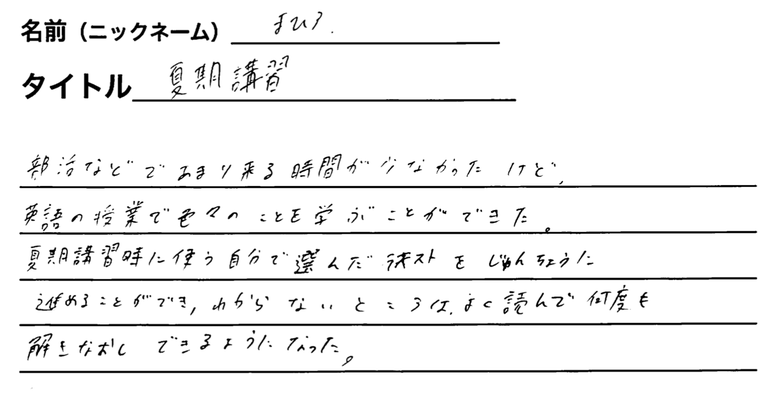 名前（ニックネーム） まひろ.
タイトル 夏期講習
部活などであまり来る時間が少なかったけど、
英語の授業で色々のことを学ぶことができた。
夏期講習時に使う自分で選んだテキストをじゅんちょうに
進めることができ、わからないところは、よく読んで何度も
解きなおしできるようになった。